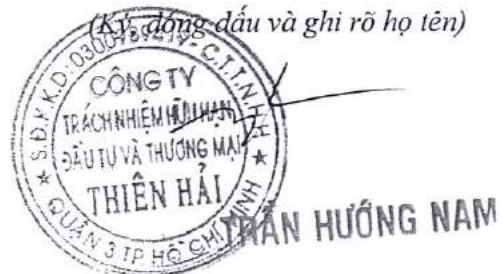 (Ký, đóng dấu và ghi rõ họ tên)
S.Đ.K.K.D: - C.T.T.N.H.H
CÔNG TY
TRÁCH NHIỆM HỮU HẠN
ĐẦU TƯ VÀ THƯƠNG MẠI
THIÊN HẢI
QUẬN 3 TP HỒ CHÍ MINH
TRẦN HƯỚNG NAM